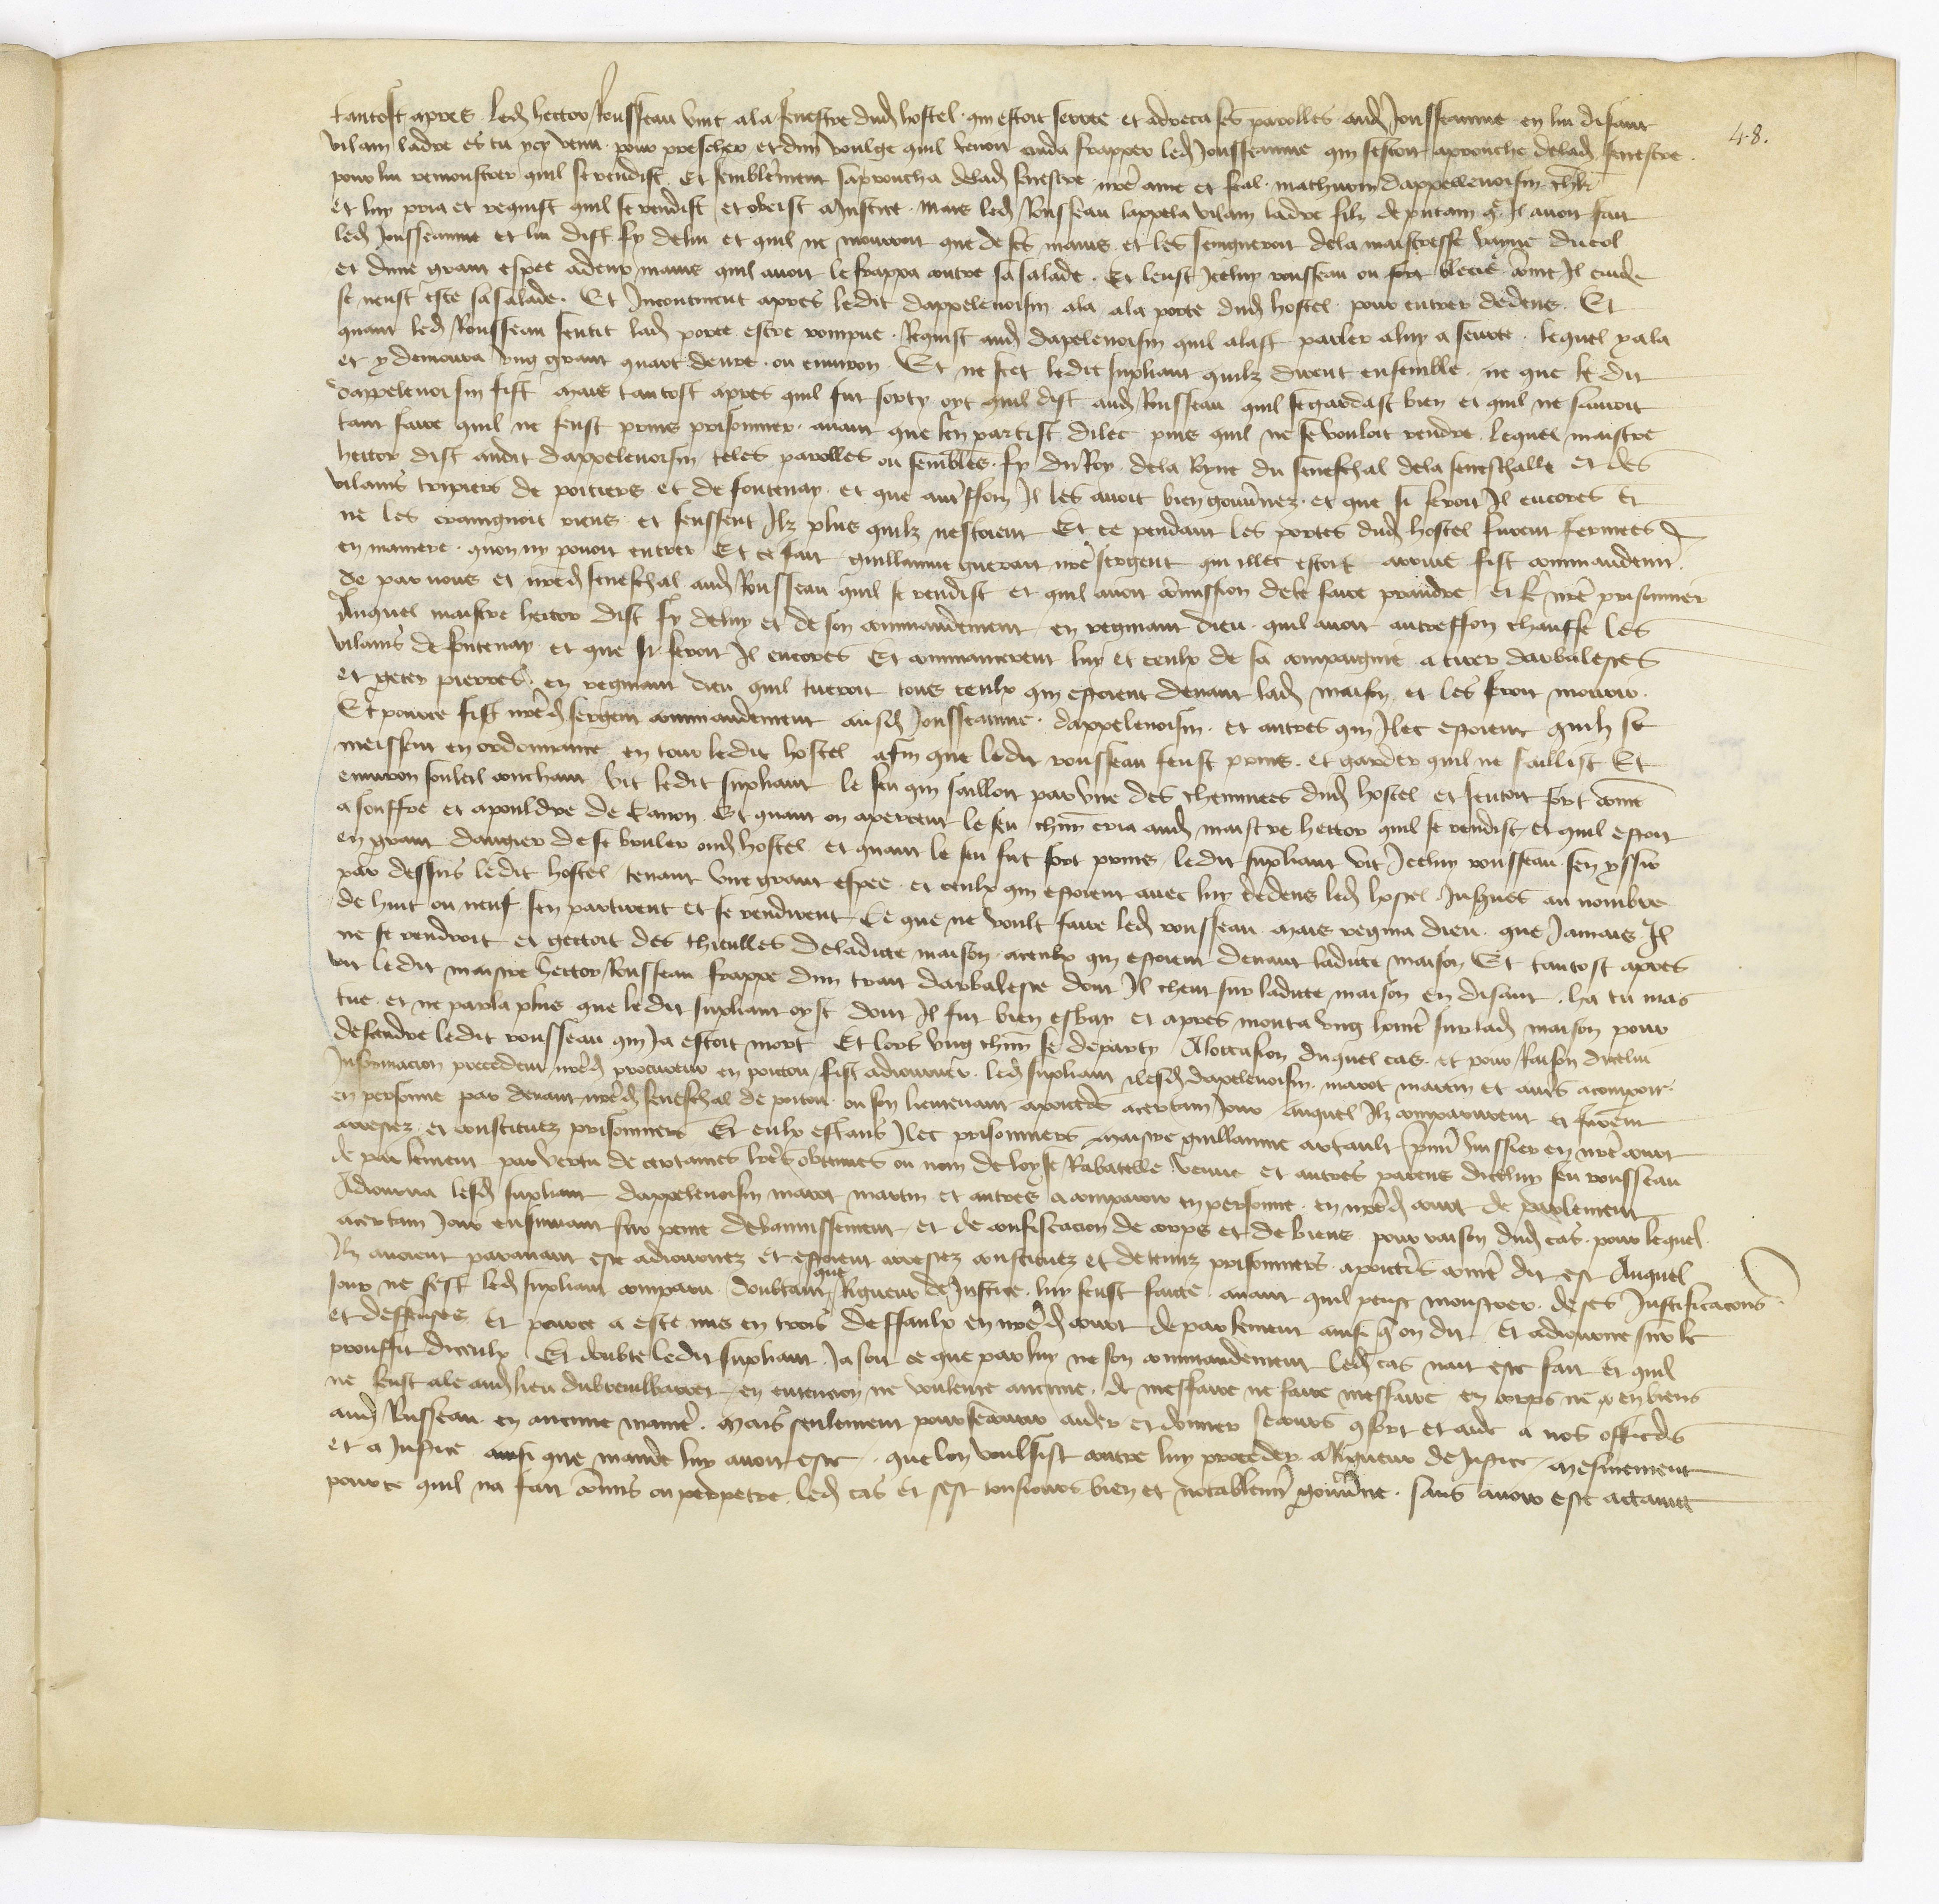 48.
tantost apres led hector Rousseau vint ala fenestre dud hostel qui estoit serree et adreca ses parolles aud Jousseaume en lui disant
vilain ladre es tu ycy venu pour prescher et dun voulge quil tenoit cuida frapper led Jousseaume qui sestoit aprouche delad fenestre
pour lui remonstrer quil se rendist Et semblement saprocha delad fenestre nre ame et feal mathurin dappellevoisin chlr
et luy pria et requist quil se rendist et obeist a Justice mais led Rousseau lappela vilain ladre filz de putain q Il avoit fait
led Jousseaume et lui dist fy de lui et quil ne mourroit que de ses mains et les seigneroit dela maistresse vayne du col
et dune grant espee adeux mains quil avoit le frappa contre sa salade Et leust Icelui rousseau ou fort blecie come Il cuide
se neust este sa salade Et Incontinent apres ledit dappelevoisin ala ala porte dud hostel pour entrer dedens Et
quant led Rousseau sentit lad porte estre rompue Requist aud dapelevoisin quil alast parler aluy a seurte lequel y ala
et y demoura ung grant quart deure ou environ Et ne scet ledit supliant quilz dirent ensemble ne que le dit
dappelevoisin fist mais tantost apres quil fut sorty oyt quil dist aud Rousseau quil se gardast bien et quil ne sauroit
tant faire quil ne feust prins prisonnier avant que len partist dilec puis quil ne se vouloit rendre lequel maistre
hector dist audit dappelevoisin teles parolles ou sembles fy du Roy dela Royne du seneschal dela seneschalle et des
vilains tripiers de poitiers et de fontenay et que autresfoiz Il les avoit bien gouvnez et que si feroit Il encores Et
ne les craingnoit riens et feussent Ilz plus quilz nestoient Et ce pendant les portes dud hostel furent fermees
en maniere quon ny povoit entrer Et ce fait guillaume guerant nre sergent qui illec estoit arrive fist commandemt
de par nous et nred seneschal aud Rousseau quil se rendist et quil avoit comission dele faire prandre et  nre prisonnier
Auquel maistre hector dist fy deluy et de son commandement en regniant dieu quil avoit autresfoiz chauffe les
vilains de fontenay et que si feroit Il encores Et commancerent luy et ceulx de sa compaignie a tirer darbalestes
et geter pierres en regniant dieu quil tueroit tous ceulx qui estoient devant lad maison et les feroit mourir
Et pource fist nred sergent commandement ausd Jousseaume dappelevoisin et autres qui Ilec estoient quilz se
meissent en ordonnance en tour ledit hostel afin que ledit rousseau feust prins et garder quil ne saillist Et
environ souleil couchant vit ledit supliant le feu qui sailloit par une des chemines dud hostel et sentoit fort come
a souffre et apouldre de canon Et quant on apercut le feu chun cria aud maistre hector quil se rendist et quil estoit
en grant dangier de se bruler oud hostel et quant le feu fut fort prins ledit supliant vit Icelui rousseau sen yssir
par dessus ledit hostel tenant une grant espee et ceulx qui estoient avec luy dedens led hostel Jusques au nombre
de huit ou neuf sen partirent et se rendirent Ce que ne voult faire led rousseau mais regnia dieu que Jamais Il
ne se rendroit et gectoit des thieulles deladicte maison aceulx qui estoient devant ladicte maison Et tantost apres
vit ledit maistre hector Rousseau frappe dun trait darbaleste dont Il cheut sur ladicte maison en disant ha tu mas
tue et ne parla plus que ledit supliant oyst dont Il fut bien esbay et apres monta ung home sur lad maison pour
descendre ledit rousseau qui Ja estoit mort Et lors ung chun se departy Aloccasion duquel cas et pour Raison dicelui
Informacion precedent nred procureur en poictou fist adiourner led supliant lesd dapelevoisin marot martin et autrs acomparoir
en personne par devant nred seneschal de poitou ou son lieutenant apoictiers acertain Jour auquel Ilz comparurent et furent
arrestez et constituez prisonniers Et eulx estans Ilec prisonniers maistre guillaume artault pmier huissier en nre court
de parlement par vertu de certaines lres obtenues ou nom de loyse Rabatelle veuve et autres parens dicelluy feu rousseau
Adiourna lesd supliant dappelevoisin marot martin et autres a comparoir en personne en nred court de parlement
acertain Jour ensuivant sur peine de bannissement et de confiscacion de corps et de biens pour raison dud cas pour lequel
Ilz avoient paravant este adiournez et estoient arrestez constituez et detenuz prisonniers apoictiers come dit est Auquel
Jour ne sest led supliant comparu doubtant que Rigueur de Justice luy feust faicte avant quil peust monstrer de ses Justificacons
et deffenses Et pource a este mis en trois deffaulx en nred court de parlement ainsi q on dit Et adiourne sur le
prouffit diceulx Et doubte ledit supliant Ja soit ce que par luy ne son commandement led cas nait este fait Et quil
ne feust ale aud lieu  en entencion ne voulente aucune de meffaire ne faire meffaire en corps ne en biens
aud Rousseau en aucune maniere Mais seulement pour secourir aider et donner secours cfort et aide a nos officiers
et a Justice ainsi que mande luy avoit este que lon voulsist contre luy proceder a Rigueur de Justice mesmement
pource quil na fait comis ou perpetre led cas Et sest tousiours bien et notablemt gouverne sans avoir este actaint